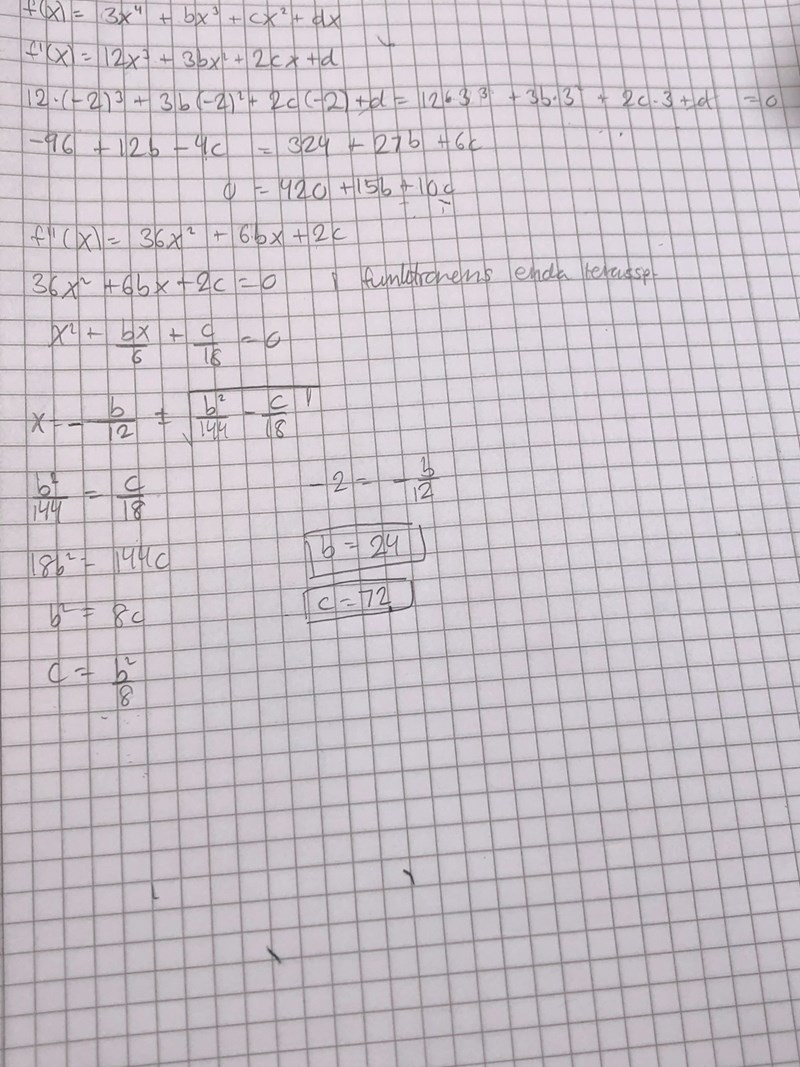 f(x) = 3x⁴ + bx³ + cx² + dx
f'(x) = 12x³ + 3bx² + 2cx + d
12·(-2)³ + 3b(-2)² + 2c(-2) + d = 12·3³ + 3b·3² + 2c·3 + d = 0
-96 + 12b - 4c = 324 + 27b + 6c
0 = 420 + 15b + 10c
f''(x) = 36x² + 6bx + 2c
36x² + 6bx + 2c = 0 funktionens enda terassp.
x² + bx/6 + c/18 = 0
x = -b/12 ± √(b²/144 - c/18)
b²/144 = c/18 -2 = -b/12
18b² = 144c b = 24
b² = 8c c = 72
c = b²/8